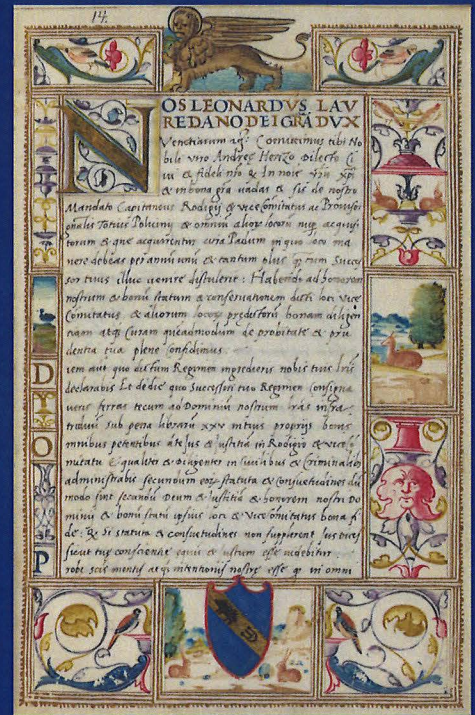 14.
NOS LEONARDVS LAV
REDANO DEI GRĀ DVX
Venetiarum &c. Comittimus tibi No
bili viro Andree Henzo dilecto Ci
vi & fideli nro & In noie Xpi
& in bona gra vadas & sis de nostro
Mandato Capitaneus Rodigij & vice comitatus ac Provisor
Totius Policinij & omniu alior locoru nup acquisi
torum & que acquirentur cura Padum in quo loco ma
nere debeas per annum unu & tantum plus quantum Succes
sor tuus illuc venire distulerit: Habendo ad honorem
nostrum & bonu statum & conservationem dicti loci Vice
Comitatus & aliorum locor predictoru bonam diligen
tiam atq curam queadmodum de probitate & pru
dentia tua plene confidimus.
tem aut quo dictum Regimen nobis tuis lris
declarabis Te dedic quo Successori tuo Regimen consigna
veris ferras tecum ad Dominiu nostrum infra
sub pena libraru XXV intuis proprijs bonis
omnibus petentibus Ius & iustitia in Rodigio & vice
mitatu Equaliter & diligenter in civilibus & criminalibus
administrabis secundum statuta & consuetudines du
modo sint secundu Deum & iustitia & honorem nostri Do
minij & bonu statu ipsius loci & vice comitatus bona fi
de: & si statuta & consuetudines non Ius dices
sicut tue conscientie equus & iustum esse videbitur.
mentis atq intentionis nostre esse q in omni
D
T
O
P